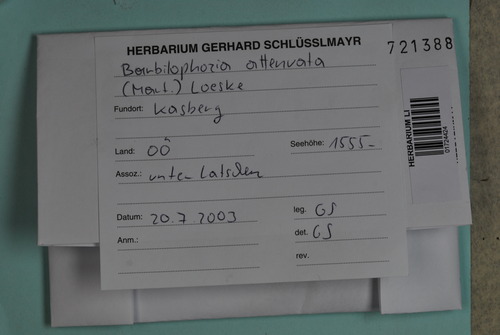 HERBARIUM GERHARD SCHLÜSSLMAYR
721388
Barbilophozia attenuata
(Mart.) Loeske
Fundort: Kasberg
Land: OÖ
Seehöhe: 1555-
Assoz.: unter Latschen
Datum: 20.7.2003
leg. GS
Anm.:
det. GS
rev.
HERBARIUM LI
01724424